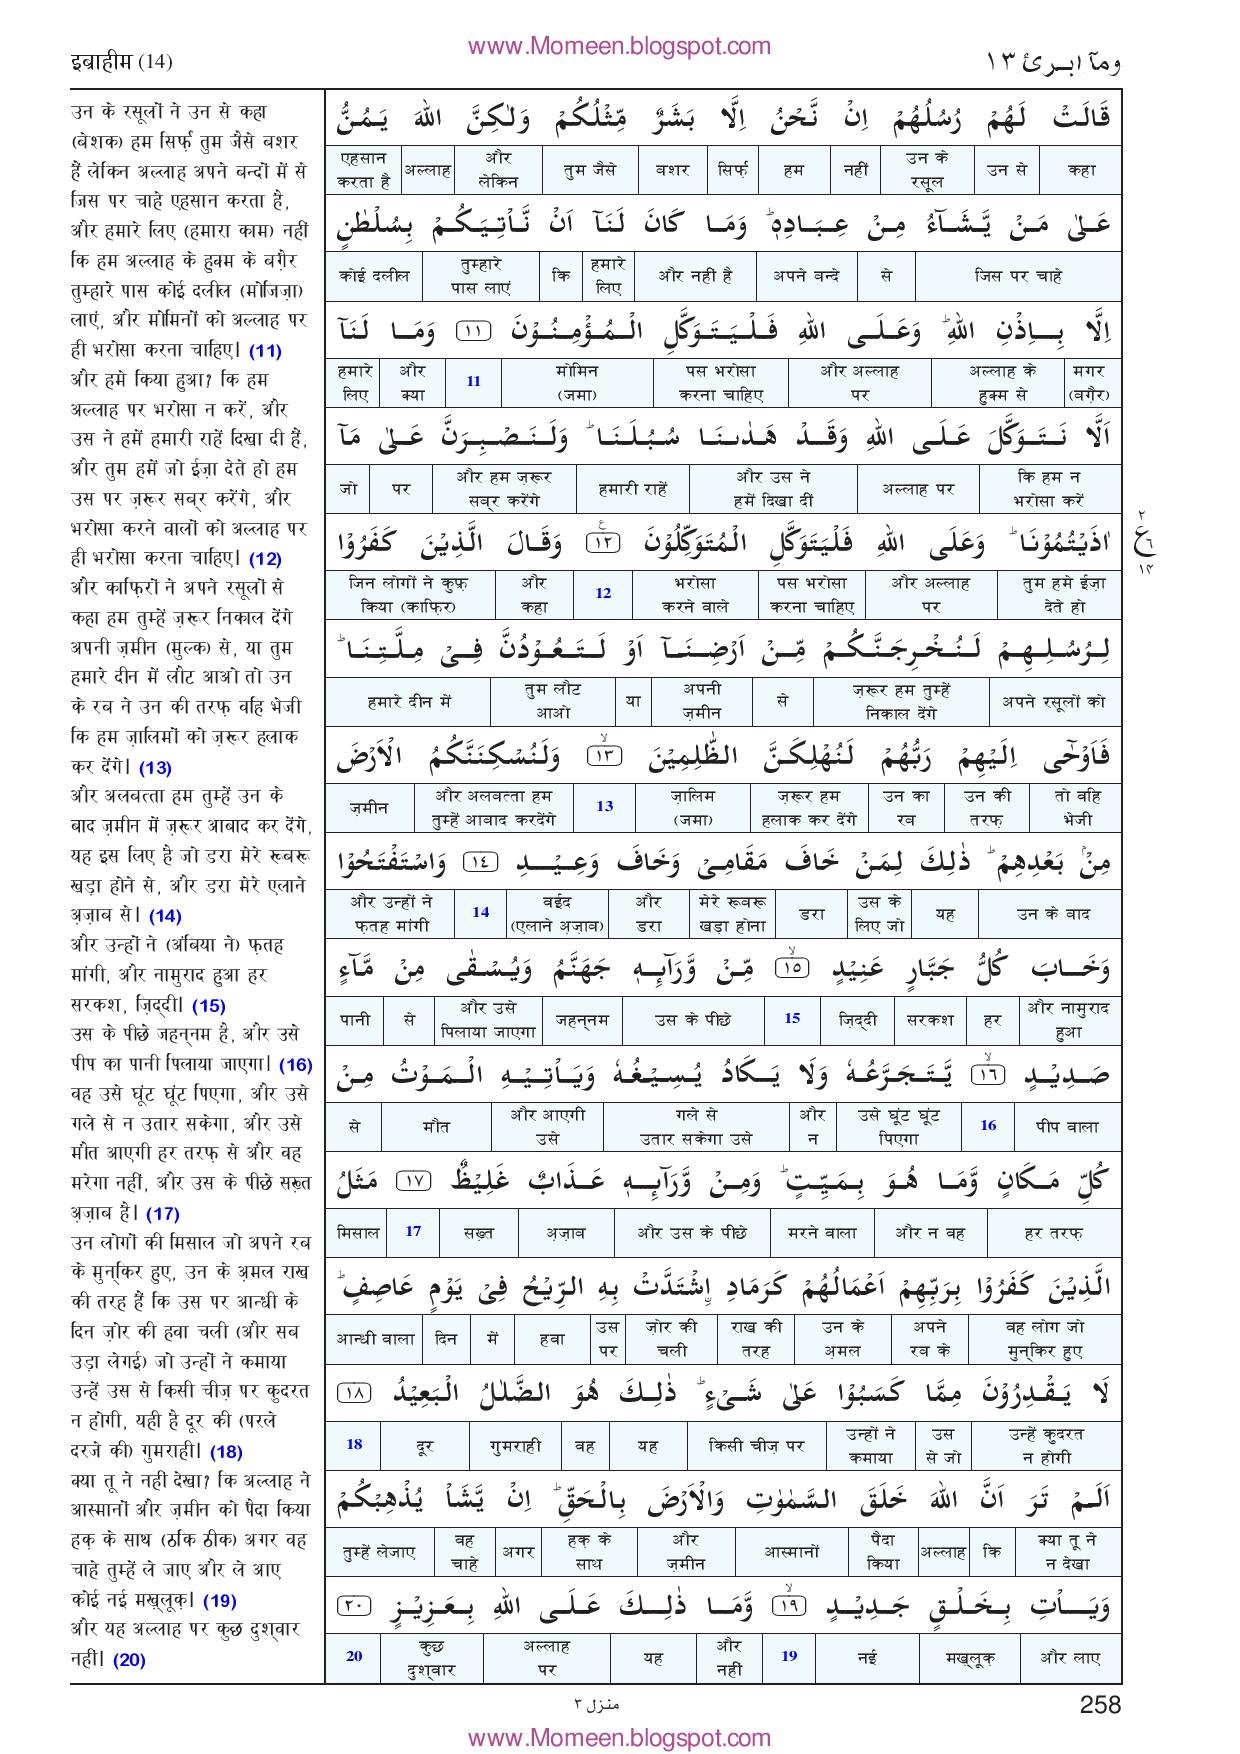 www.Momeen.blogspot.com
इब्राहीम (14)
ومآ ابرئ ١٣
उन के रसूलों ने उन से कहा
(बेशक) हम सिर्फ़ तुम जैसे बशर
हैं लेकिन अल्लाह अपने बन्दों में से
जिस पर चाहे एहसान करता है,
और हमारे लिए (हमारा काम) नहीं
कि हम अल्लाह के हुक्म के बग़ैर
तुम्हारे पास कोई दलील (मोजिज़ा)
लाएं, और मोमिनों को अल्लाह पर
ही भरोसा करना चाहिए। (11)
और हमें किया हुआ? कि हम
अल्लाह पर भरोसा न करें, और
उस ने हमें हमारी राहें दिखा दी हैं,
और तुम हमें जो ईज़ा देते हो हम
उस पर ज़रूर सब्र करेंगे, और
भरोसा करने वालों को अल्लाह पर
ही भरोसा करना चाहिए। (12)
और काफ़िरों ने अपने रसूलों से
कहा हम तुम्हें ज़रूर निकाल देंगे
अपनी ज़मीन (मुल्क) से, या तुम
हमारे दीन में लौट आओ तो उन
के रब ने उन की तरफ़ वहि भेजी
कि हम ज़ालिमों को ज़रूर हलाक
कर देंगे। (13)
और अलबत्ता हम तुम्हें उन के
बाद ज़मीन में ज़रूर आबाद कर देंगे,
यह इस लिए है जो डरा मेरे रूबरू
खड़ा होने से, और डरा मेरे एलाने
अज़ाब से। (14)
और उन्हों ने (अंबिया ने) फ़तह
मांगी, और नामुराद हुआ हर
सरकश, ज़िद्दी। (15)
उस के पीछे जहन्नम है, और उसे
पीप का पानी पिलाया जाएगा। (16)
वह उसे घूंट घूंट पिएगा, और उसे
गले से न उतार सकेगा, और उसे
मौत आएगी हर तरफ़ से और वह
मरेगा नहीं, और उस के पीछे सख़्त
अज़ाब है। (17)
उन लोगों की मिसाल जो अपने रब
के मुन्किर हुए, उन के अ़मल राख
की तरह हैं कि उस पर आन्धी के
दिन ज़ोर की हवा चली (और सब
उड़ा लेगई) जो उन्हों ने कमाया
उन्हें उस से किसी चीज़ पर कुदरत
न होगी, यही है दूर की (परले
दरजे की) गुमराही। (18)
क्या तू ने नहीं देखा? कि अल्लाह ने
आस्मानों और ज़मीन को पैदा किया
हक़ के साथ (ठीक ठीक) अगर वह
चाहे तुम्हें ले जाए और ले आए
कोई नई मख़्लूक़। (19)
और यह अल्लाह पर कुछ दुश्वार
नहीं। (20)
قَالَتْ لَهُمْ رُسُلُهُمْ اِنْ نَّحْنُ اِلَّا بَشَرٌ مِّثْلُكُمْ وَلٰكِنَّ اللهَ يَمُنُّ
कहा उन से उन के रसूल नहीं हम सिर्फ़ बशर तुम जैसे और लेकिन अल्लाह एहसान करता है
عَلٰى مَنْ يَّشَآءُ مِنْ عِبَادِهٖ ؕ وَمَا كَانَ لَنَآ اَنْ نَّاْتِيَكُمْ بِسُلْطٰنٍ
जिस पर चाहे से अपने बन्दे और नहीं है हमारे लिए कि तुम्हारे पास लाएं कोई दलील
اِلَّا بِاِذْنِ اللهِ ؕ وَعَلَى اللهِ فَلْيَتَوَكَّلِ الْمُؤْمِنُوْنَ ١١ وَمَا لَنَآ
मगर (बग़ैर) अल्लाह के हुक्म से और अल्लाह पर पस भरोसा करना चाहिए मोमिन (जमा) 11 और क्या हमारे लिए
اَلَّا نَتَوَكَّلَ عَلَى اللهِ وَقَدْ هَدٰىنَا سُبُلَنَا ؕ وَلَنَصْبِرَنَّ عَلٰى مَآ
कि हम न भरोसा करें अल्लाह पर और उस ने हमें दिखा दीं हमारी राहें और हम ज़रूर सब्र करेंगे पर जो
اٰذَيْتُمُوْنَا ؕ وَعَلَى اللهِ فَلْيَتَوَكَّلِ الْمُتَوَكِّلُوْنَ ١٢ ع وَقَالَ الَّذِيْنَ كَفَرُوْا
٢ ع ٦ ١٤
तुम हमें ईज़ा देते हो और अल्लाह पर पस भरोसा करना चाहिए भरोसा करने वाले 12 और कहा जिन लोगों ने कुफ़् किया (काफ़िर)
لِرُسُلِهِمْ لَنُخْرِجَنَّكُمْ مِّنْ اَرْضِنَآ اَوْ لَتَعُوْدُنَّ فِىْ مِلَّتِنَا ؕ
अपने रसूलों को ज़रूर हम तुम्हें निकाल देंगे से अपनी ज़मीन या तुम लौट आओ हमारे दीन में
فَاَوْحٰٓى اِلَيْهِمْ رَبُّهُمْ لَنُهْلِكَنَّ الظّٰلِمِيْنَ ١٣ لا وَلَنُسْكِنَنَّكُمُ الْاَرْضَ
तो वहि भेजी उन की तरफ़ उन का रब ज़रूर हम हलाक कर देंगे ज़ालिम (जमा) 13 और अलबत्ता हम तुम्हें आबाद करदेंगे ज़मीन
مِنْۢ بَعْدِهِمْ ؕ ذٰلِكَ لِمَنْ خَافَ مَقَامِىْ وَخَافَ وَعِيْدِ ١٤ وَاسْتَفْتَحُوْا
उन के बाद यह उस के लिए जो डरा मेरे रूबरू खड़ा होना और डरा वईद (एलाने अज़ाब) 14 और उन्हों ने फ़तह मांगी
وَخَابَ كُلُّ جَبَّارٍ عَنِيْدٍ ١٥ لا مِّنْ وَّرَآئِهٖ جَهَنَّمُ وَيُسْقٰى مِنْ مَّآءٍ
और नामुराद हुआ हर सरकश ज़िद्दी 15 उस के पीछे जहन्नम और उसे पिलाया जाएगा से पानी
صَدِيْدٍ ١٦ لا يَّتَجَرَّعُهٗ وَلَا يَكَادُ يُسِيْغُهٗ وَيَاْتِيْهِ الْمَوْتُ مِنْ
पीप वाला 16 उसे घूंट घूंट पिएगा और न गले से उतार सकेगा उसे और आएगी उसे मौत से
كُلِّ مَكَانٍ وَّمَا هُوَ بِمَيِّتٍ ؕ وَمِنْ وَّرَآئِهٖ عَذَابٌ غَلِيْظٌ ١٧ مَثَلُ
हर तरफ़ और न वह मरने वाला और उस के पीछे अज़ाब सख़्त 17 मिसाल
الَّذِيْنَ كَفَرُوْا بِرَبِّهِمْ اَعْمَالُهُمْ كَرَمَادِ ۨاشْتَدَّتْ بِهِ الرِّيْحُ فِىْ يَوْمٍ عَاصِفٍ ؕ
वह लोग जो मुन्किर हुए अपने रब के उन के अ़मल राख की तरह ज़ोर की चली उस पर हवा में दिन आन्धी वाला
لَا يَقْدِرُوْنَ مِمَّا كَسَبُوْا عَلٰى شَىْءٍ ؕ ذٰلِكَ هُوَ الضَّلٰلُ الْبَعِيْدُ ١٨
उन्हें कुदरत न होगी उस से जो उन्हों ने कमाया किसी चीज़ पर यह वह गुमराही दूर 18
اَلَمْ تَرَ اَنَّ اللهَ خَلَقَ السَّمٰوٰتِ وَالْاَرْضَ بِالْحَقِّ ؕ اِنْ يَّشَاْ يُذْهِبْكُمْ
क्या तू ने न देखा कि अल्लाह पैदा किया आस्मानों और ज़मीन हक़ के साथ अगर वह चाहे तुम्हें लेजाए
وَيَاْتِ بِخَلْقٍ جَدِيْدٍ ١٩ لا وَّمَا ذٰلِكَ عَلَى اللهِ بِعَزِيْزٍ ٢٠
और लाए मख़्लूक़ नई 19 और नहीं यह अल्लाह पर कुछ दुश्वार 20
منزل ٣
258
www.Momeen.blogspot.com